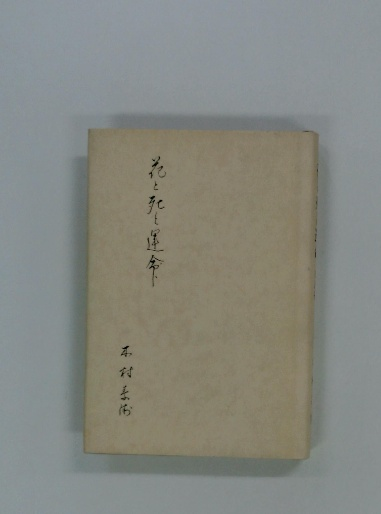 花と死と運命
木村素衞